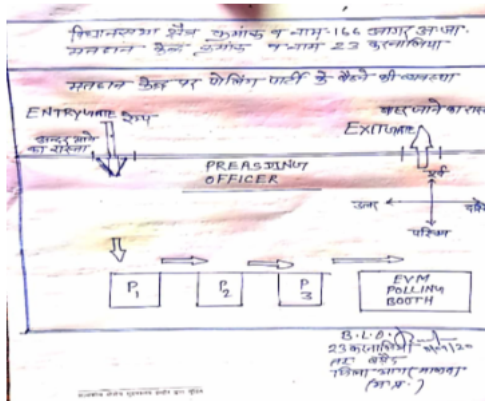 विधानसभा क्षेत्र क्रमांक व नाम-166 आगर अ.जा.
मतदान केन्द्र क्रमांक व नाम 23 करनालिया
मतदान केन्द्र पर पोलिंग पार्टी के बैठने की व्यवस्था
ENTRYGATE रैम्प
अन्दर आने
का रास्ता
बाहर जाने का रास्
EXITGATE
PREASJING
OFFICER
पूर्व
उत्तर
दक्षि
पश्चिम
P1
P2
P3
EVM
POLLING
BOOTH
B.L.O.
23 करनालिया
तह. बड़ौद
जिला आगर मालवा
(म.प्र.)